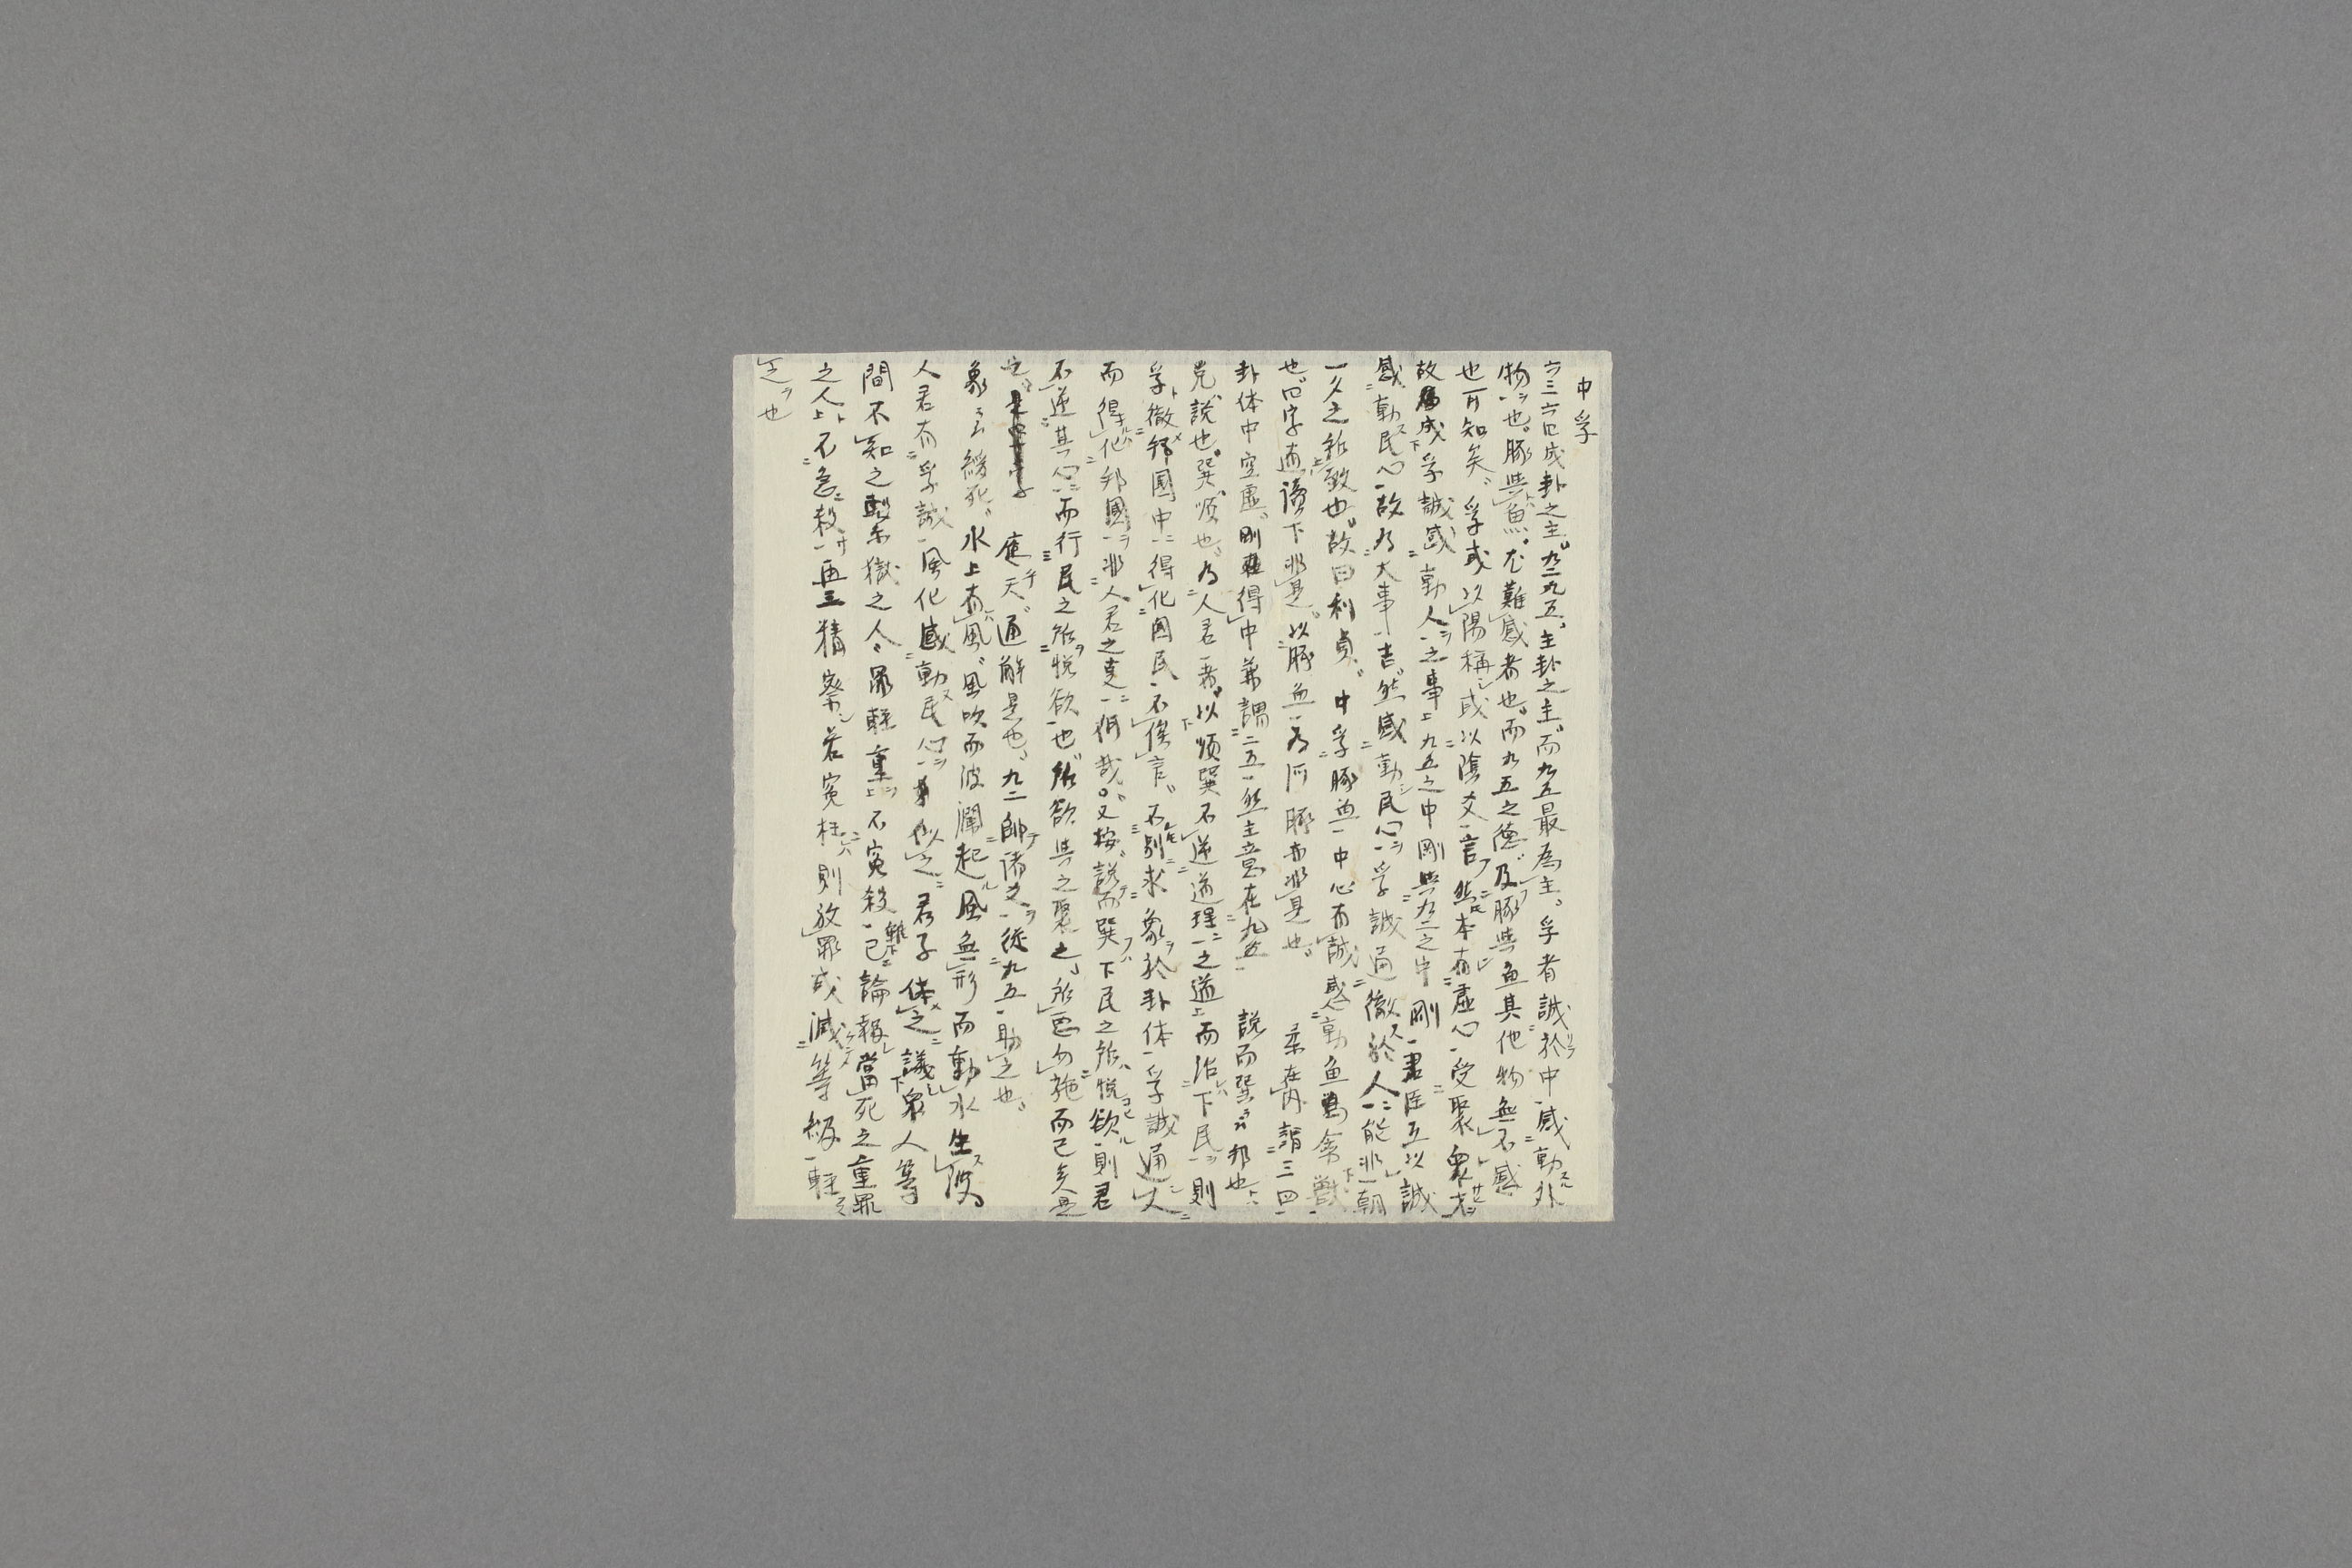 中孚
六三六四成卦之主。九二九五、主卦之主。而九五最為主。孚者誠於中感動外
物也。豚与魚。尤難感者也。而九五之徳。及豚与魚其他物無不感
也可知矣。孚或以陽称或以陰爻言然本有虚心受聚衆者
故成孚誠感動人之事九五之中剛与九二之中剛君臣互以誠
感動民心故為大事吉。然感動民心孚誠通徹於人能非一朝
一夕之所致也。故曰利貞。中孚豚魚中心有誠感動魚禽獣
也。字連讀下非是。以豚魚為河豚亦非是也。柔在内謂三四
卦体中空虚。剛得中兼謂二五然主意在九五説而巽邦也
兌説也。巽順也。為人君者。以順巽不逆道理之道而治下民則
孚徹邦國中得化国民不俟言。不別求象於卦体孚誠通人
而得化邦國非人君之徳何哉。又按説而巽下民之所悦欲則君
不逆其心而行民之所悦欲也。所欲与之聚之、所悪勿施而已矣是
也。應天通解是也。九二帥諸爻從九五助之也。
象云緩死。水上有風。風吹而波瀾起風無形而動水生波
人君有孚誠風化感動民心似之君子体之議衆人等
間不知之繋獄之人罪軽重不冤殺已雖論報當死之重罪
之人不急殺再三精察若冤枉則放罪或減等級軽
之也